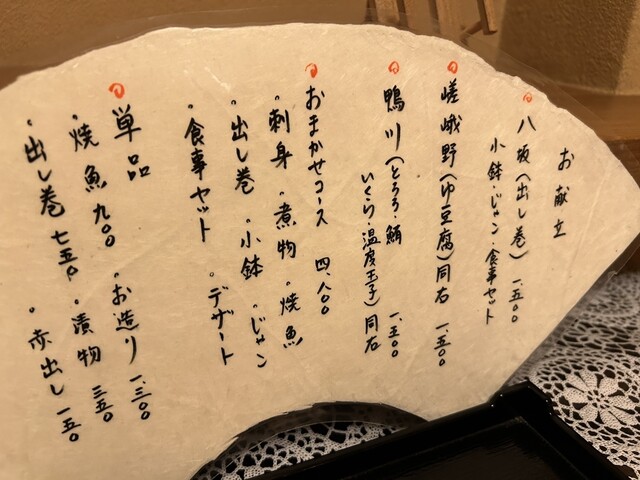 お献立
八坂(出し巻) 一、五〇〇
小鉢・じゃン・食事セット
嵯峨野(ゆ豆腐)同右 一、五〇〇
鴨川(とろろ・鮪 一、五〇〇
いくら・温度玉子)同右
おまかせコース 四、八〇〇
・刺身 ・煮物 ・焼魚
・出し巻 小鉢 ・じゃン
・食事セット ・デザート
単品
・焼魚 九〇〇 ・お造り 一、三〇〇
・出し巻 七五〇 ・漬物 三五〇
・赤出し 一五〇